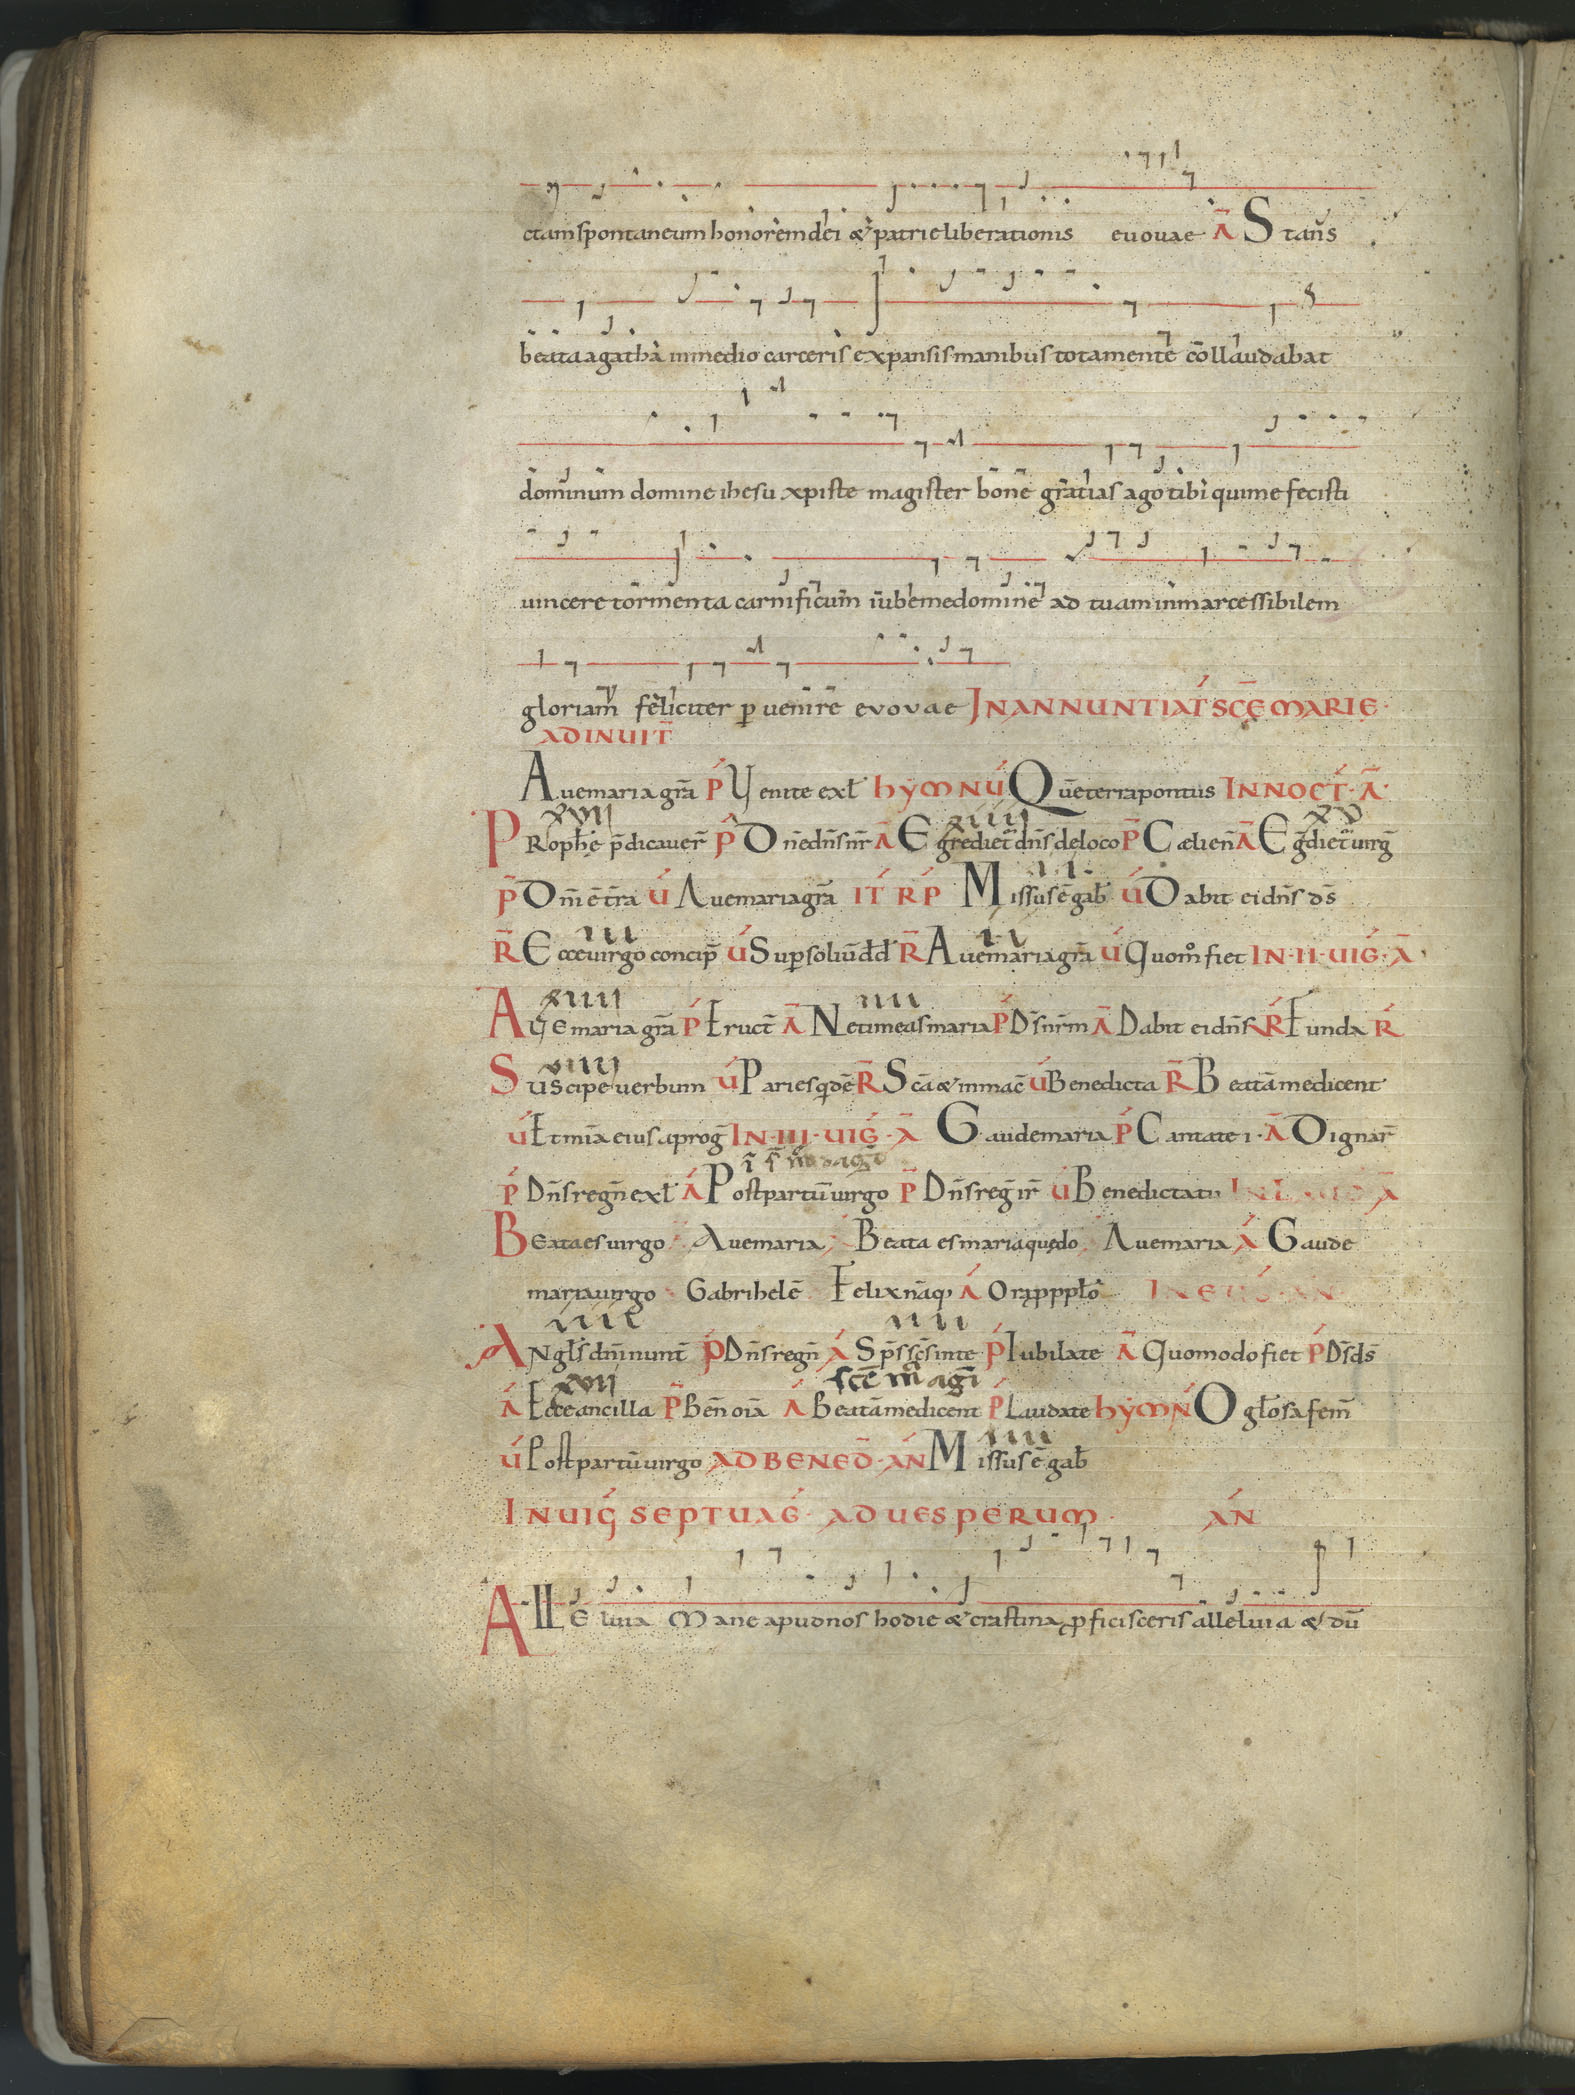 ctam spontaneum honorem dei & patrie liberationis euouae Ā Stans
beata agatha inmedio carceris expansis manibus tota mente collaudabat
dominum domine ihesu xpiste magister bone gratias ago tibi qui me fecisti
uincere tormenta carnificum iube me domine ad tuam inmarcessibilem
gloriam feliciter peruenire euouae IN ANNUNTIAT SCĒ MARIE
AD INUIT̄
Aue maria grā P̄ Uenite exl̄ hymnū Quē terra pontus IN NOCT̄. Ā
xvii xiiii xv
Prophę p̄dicauer̄ P̄ Dn̄e dn̄s nr̄ Ā Egredietr̄ dn̄s de loco P̄ Cæli en̄ Ā Egdiet̄ uirḡ
P̄ Dn̄i ē t̄ra Ū Aue maria grā IT̄ RP̄ Missus ē gab̄ Ū Dabit ei dn̄s ds̄
iii ii
R̄ Ecce uirgo concip̄ Ū Sup soliū dd̄ R̄ Aue maria grā Ū Quom̊ fiet IN. II. UIG. Ā
xiiii iiii
Aue maria grā P̄ Eruct̄ Ā Ne timeas maria P̄ Ds̄ nr̄m Ā Dabit ei dn̄s R̄ Efunda R̄
viiii
Suscipe uerbum Ū Paries qdē R̄ Scā & inmac̄ Ū Benedicta R̄ Beatā me dicent
Ū Et mīa eius a proḡ IN. III. UIG. Ā Gaude maria P̄ Cantate i. Ā Dignar̄
P̄ Dn̄s regn̄ exl̄ Ā Post partū uirgo P̄ Dn̄s reḡ ir̄ Ū Benedicta tu IN LAUD Ā
Beata es uirgo Aue maria Beata es maria quę do Aue maria Ā Gaude
maria uirgo Gabrihelē Felix nāq; Ā Ora p ppl̄o IN EUḠ. AN
iiii iiii
Angl̄s dn̄i nunt̄ P̄ Dn̄s regn̄ Ā Sp̄s scs̄ inte P̄ Iubilate Ā Quomodo fiet P̄ Ds̄ ds̄
xvii scē m̄ agi
Ā Ecce ancilla P̄ Ben̄ oīa Ā Beatā me dicent P̄ Laudate hymn̄ O glōsa fem̄
iiii
Ū Post partū uirgo AD BENED̄. AN̄ Missus ē gab̄
IN UIḠ SEPTUAḠ. AD UESPERUM. AN̄
Alleluia Mane apud nos hodie & crastina pficisceris alleluia & dū